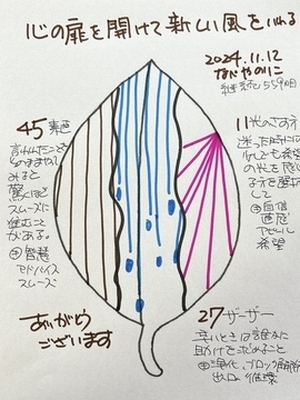 心の扉を開けて新しい風をいれる
2024.11.12
なじゃのりこ
継続559日目
45 素直
言われたことを
そのままやって
みると
驚くほど
スムーズに
進むこと
がある。
㋖智慧
アドバイス
スムーズ
11 光のさす方
迷った時には
少しでも希望
の光を感じ
る方を選択
して
㋖自信
進展
アピール
希望
27 ザーザー
辛いときは誰かに
助けを求めること
㋖浄化、ブロック解除
出口 循環
ありがとう
ございます